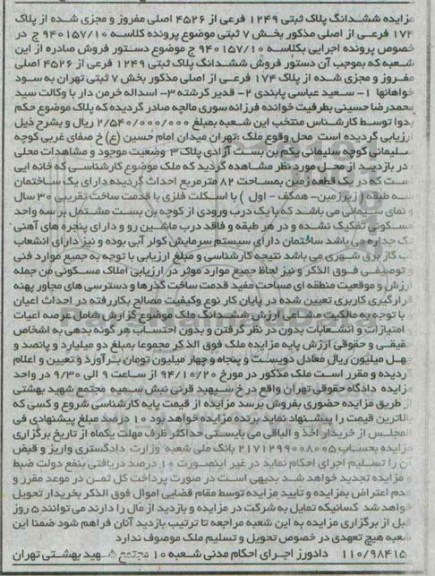 مزایده ششدانگ پلاک ثبتی ۱۲۴۹ فرعی از ۴۵۲۶ اصلی مفروز و مجزی شده از پلاک
۱۷۴ فرعی از اصلی مذکور بخش ۷ ثبتی موضوع پرونده کلاسه ۹۴۰۱۵۷/۱۰ ج در
خصوص پرونده اجرایی بکلاسه ۹۴۰۱۵۷/۱۰ ج موضوع دستور فروش صادره از این
شعبه که بموجب آن دستور فروش ششدانگ پلاک ثبتی ۱۲۴۹ فرعی از ۴۵۲۶ اصلی
مفروز و مجزی شده از پلاک ۱۷۴ فرعی از اصلی مذکور بخش ۷ ثبتی تهران به سود
خواهانها ۱- سعید عباسی پابندی ۲- قدیر کرشته ۳- اسداله خرمن دار با وکالت سید
محمدرضا حسینی بطرفیت خوانده فرزانه سوری مالچه صادر گردیده که پلاک موضوع حکم
بدوا توسط کارشناس منتخب این شعبه بمبلغ ۲/۵۴۰/۰۰۰/۰۰۰ ریال و بشرح ذیل
ارزیابی گردیده است محل وقوع ملک :تهران میدان امام حسین (ع) خ صفای غربی کوچه
سلیمانی کوچه سلیمانی یکم بن بست آزادی پلاک ۳ وضعیت موجود و مشاهدات محلی
در بازدید از محل مورد نظر مشاهده گردید که ملک موضوع کارشناسی که خانه ایی
است که در یک قطعه زمین بمساحت ۸۲ مترمربع احداث گردیده دارای یک ساختمان
سه طبقه ( زیرزمین- همکف - اول ) با اسکلت فلزی با قدمت ساخت تقریبی ۳۰ سال
و نمای سیمانی می باشد که با یک درب ورودی از کوچه بن بست مشتمل بر سه واحد
مسکونی تفکیک نشده و در هر طبقه و فاقد درب ماشین رو و دارای پنجره های آهنی
تک جداره می باشد ساختمان دارای سیستم سرمایش کولر آبی بوده و نیز دارای انشعاب
آب گاز برق شهری می باشد نتیجه کارشناسی و مبلغ ارزیابی با توجه به جمیع موارد فنی
و توصیفی فوق الذکر و نیز لحاظ جمیع موارد موثر در ارزیابی املاک مسکونی من جمله
ارزش و موقعیت منطقه ای مساحت مفید قدمت ساخت گذرها و دسترسی های مجاور پهنه
قرارگیری کاربری تعیین شده در پایان کار نوع وکیفیت مصالح بکاررفته در احداث اعیان
با توجه به مالکیت مشاعی ارزش ششدانگ ملک موضوع گزارش شامل عرصه اعیان
امتیازات و انشعابات بدون در نظر گرفتن و بدون احتساب هر گونه بدهی به اشخاص
حقیقی و حقوقی ارزش پایه مزایده ملک فوق الذکر مجموعا بمبلغ دو میلیارد و پانصد و
چهل میلیون ریال معادل دویست و پنجاه و چهار میلیون تومان برآورد و تعیین و اعلام
گردیده و مقرر است ملک مذکور در مورخ ۹۴/۱۰/۲۰ از ساعت ۹ الی ۹/۳۰ در واحد
مزایده دادگاه حقوقی تهران واقع در خ سپهبد قرنی نبش سمیه مجتمع شهید بهشتی
از طریق مزایده حضوری بفروش برسد مزایده از قیمت پایه کارشناسی شروع و کسی که
بالاترین قیمت را پیشنهاد نماید برنده مزایده خواهد بود ۱۰ درصد مبلغ پیشنهادی فی
المجلس از خریدار اخذ و الباقی می بایستی حداکثر ظرف مهلت یکماه از تاریخ برگزاری
مزایده بحساب ۲۱۷۱۲۹۹۰۰۸۰۰۵ بانک ملی شعبه وزارت دادگستری واریز و فیض
آن را تسلیم اجرای احکام نماید در غیر اینصورت ۱۰ درصد دریافتی بنفع دولت ضبط
و مزایده تجدید خواهد شد بدیهی است در صورت پرداخت کل ثمن در موعد مقرر و
عدم اعتراض بمزایده و تایید مزایده توسط مقام قضایی اموال فوق الذکر بخریدار تحویل
خواهد شد کسانیکه تمایل به شرکت در مزایده و بازدید از مال را دارند می توانند ۵ روز
قبل از برگزاری مزایده به این شعبه مراجعه تا ترتیب بازدید آنان فراهم شود ضمنا این
شعبه هیچ تعهدی در خصوص تحویل و تسلیم ملک موصوف ندارد
۱۱۰/۹۸۴۱۵ دادورز اجرای احکام مدنی شعبه ۱۰ مجتمع شهید بهشتی تهران